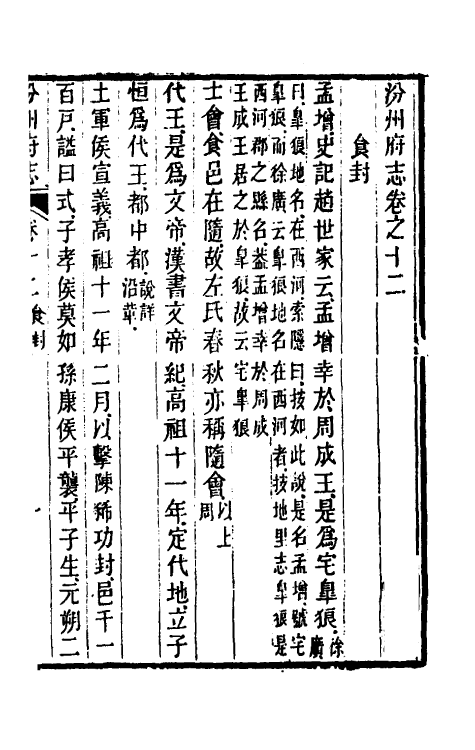 汾州府志卷之十二
食封
孟增史記趙世家云孟增幸於周成王是爲宅臯狼徐廣
曰臯狼地名在西河索隱曰按如此說是名孟增號宅
臯狼而徐廣云臯狼地名在西河者按地理志臯狼是
西河郡之縣名葢孟增幸於周成
王成王居之於臯狼故云宅臯狼
士會食邑在隨故左氏春秋亦稱隨會以上周
代王是爲文帝漢書文帝紀高祖十一年定代地立子
恒爲代王都中都說詳沿革
土軍侯宣義高祖十一年二月以擊陳豨功封邑千一
百戶諡曰式子孝侯莫如孫康侯平襲平子生元朔二
汾州府志
卷十二食封
一